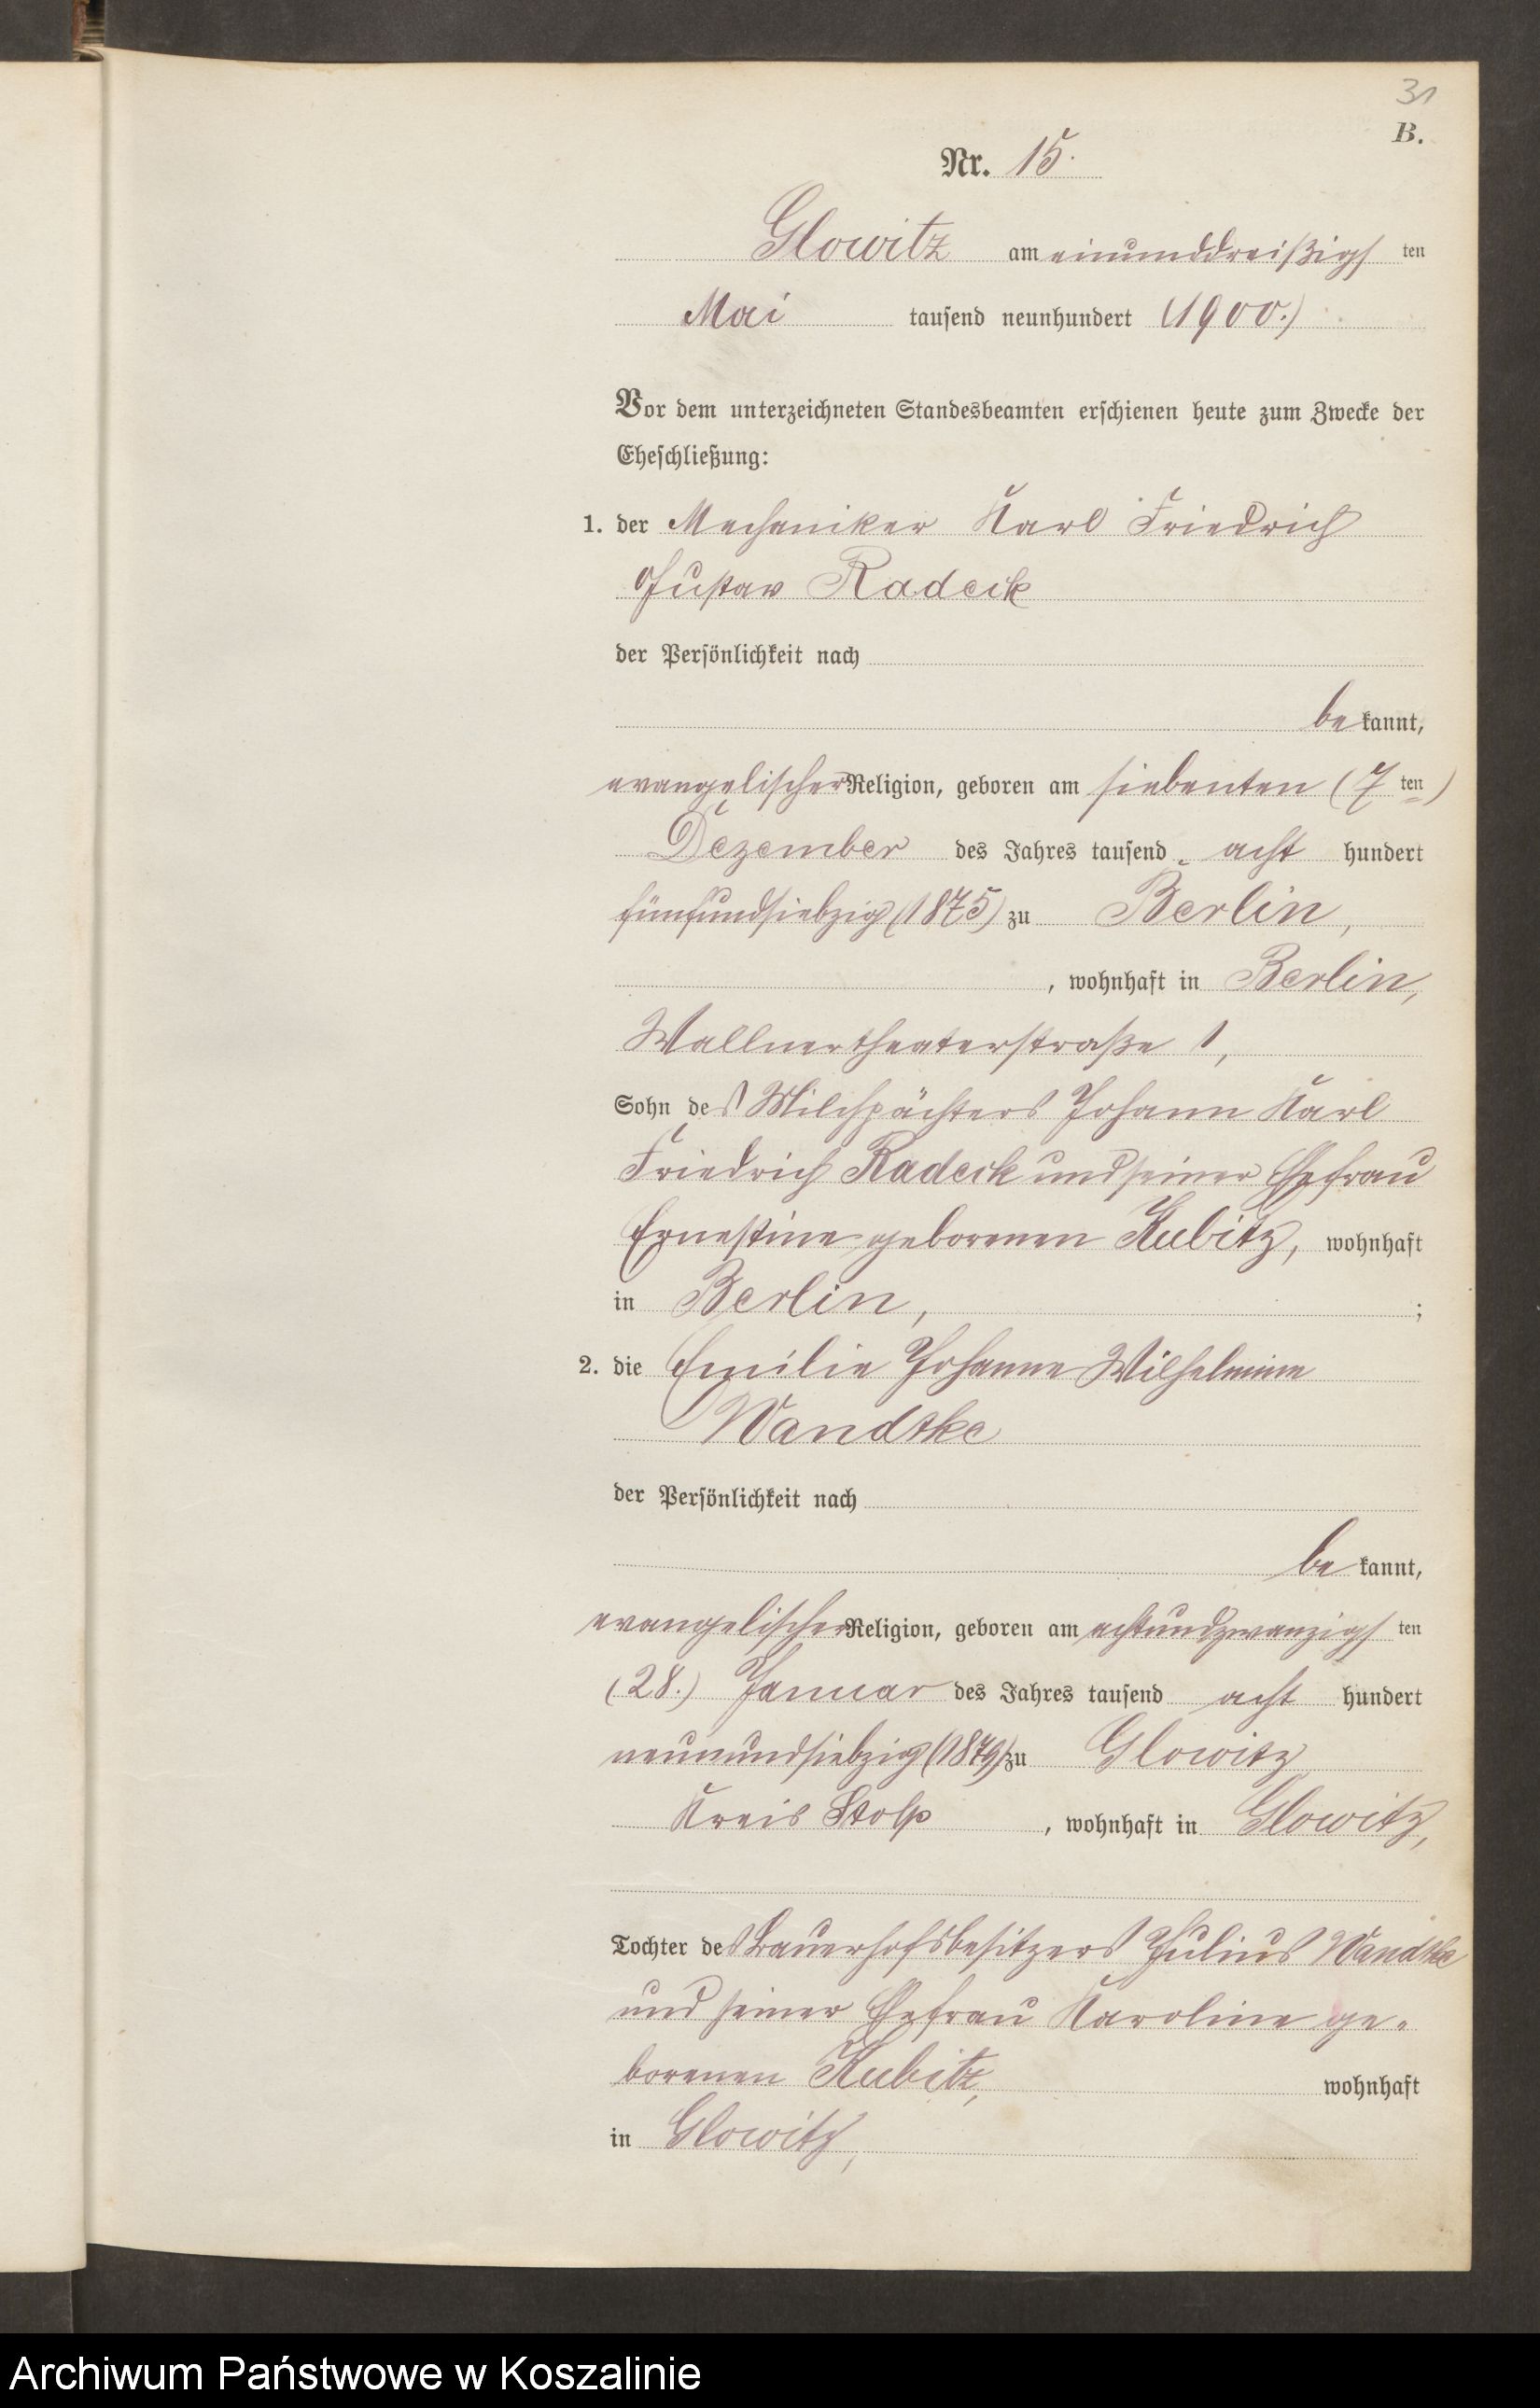 31
B.
Nr. 15.
Glowitz am einunddreißigs ten
Mai tausend neunhundert (1900.)
Vor dem unterzeichneten Standesbeamten erschienen heute zum Zwecke der
Eheschließung:
1. der Mechaniker Karl Friedrich
Gustav Radeck
der Persönlichkeit nach
be kannt,
evangelischer Religion, geboren am siebenten (7 ten)
Dezember des Jahres tausend acht hundert
fünfundsiebzig (1875) zu Berlin,
, wohnhaft in Berlin,
Wallnertheaterstraße 1,
Sohn des Milchpächters Johann Karl
Friedrich Radeck und seiner Ehefrau
Ernestine geborenen Kubitz, wohnhaft
in Berlin, ;
2. die Emilie Johanne Wilhelmine
Wandtke
der Persönlichkeit nach
be kannt,
evangelischer Religion, geboren am achtundzwanzigs ten
(28.) Januar des Jahres tausend acht hundert
neunundsiebzig (1879) zu Glowitz
Kreis Stolp , wohnhaft in Glowitz,
Tochter des Bauerhofsbesitzers Julius Wandtke
und seiner Ehefrau Karoline ge-
borenen Kubitz, wohnhaft
in Glowitz,
Archiwum Państwowe w Koszalinie